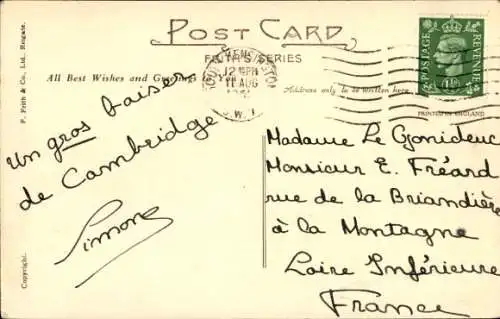 POST CARD
FRITH'S SERIES
All Best Wishes and Greetings
Address only to be written here
F. Frith & Co., Ltd., Reigate.
Copyright.
KENSINGTON
12 PM
11 AUG
S.W.7
POSTAGE
REVENUE
PRINTED IN ENGLAND
un gros baiser
de Cambridge
Simone
Madame Le Gonidenc
Monsieur E. Fréard
rue de la Briandière
à la Montagne
Loire Inférieure
France